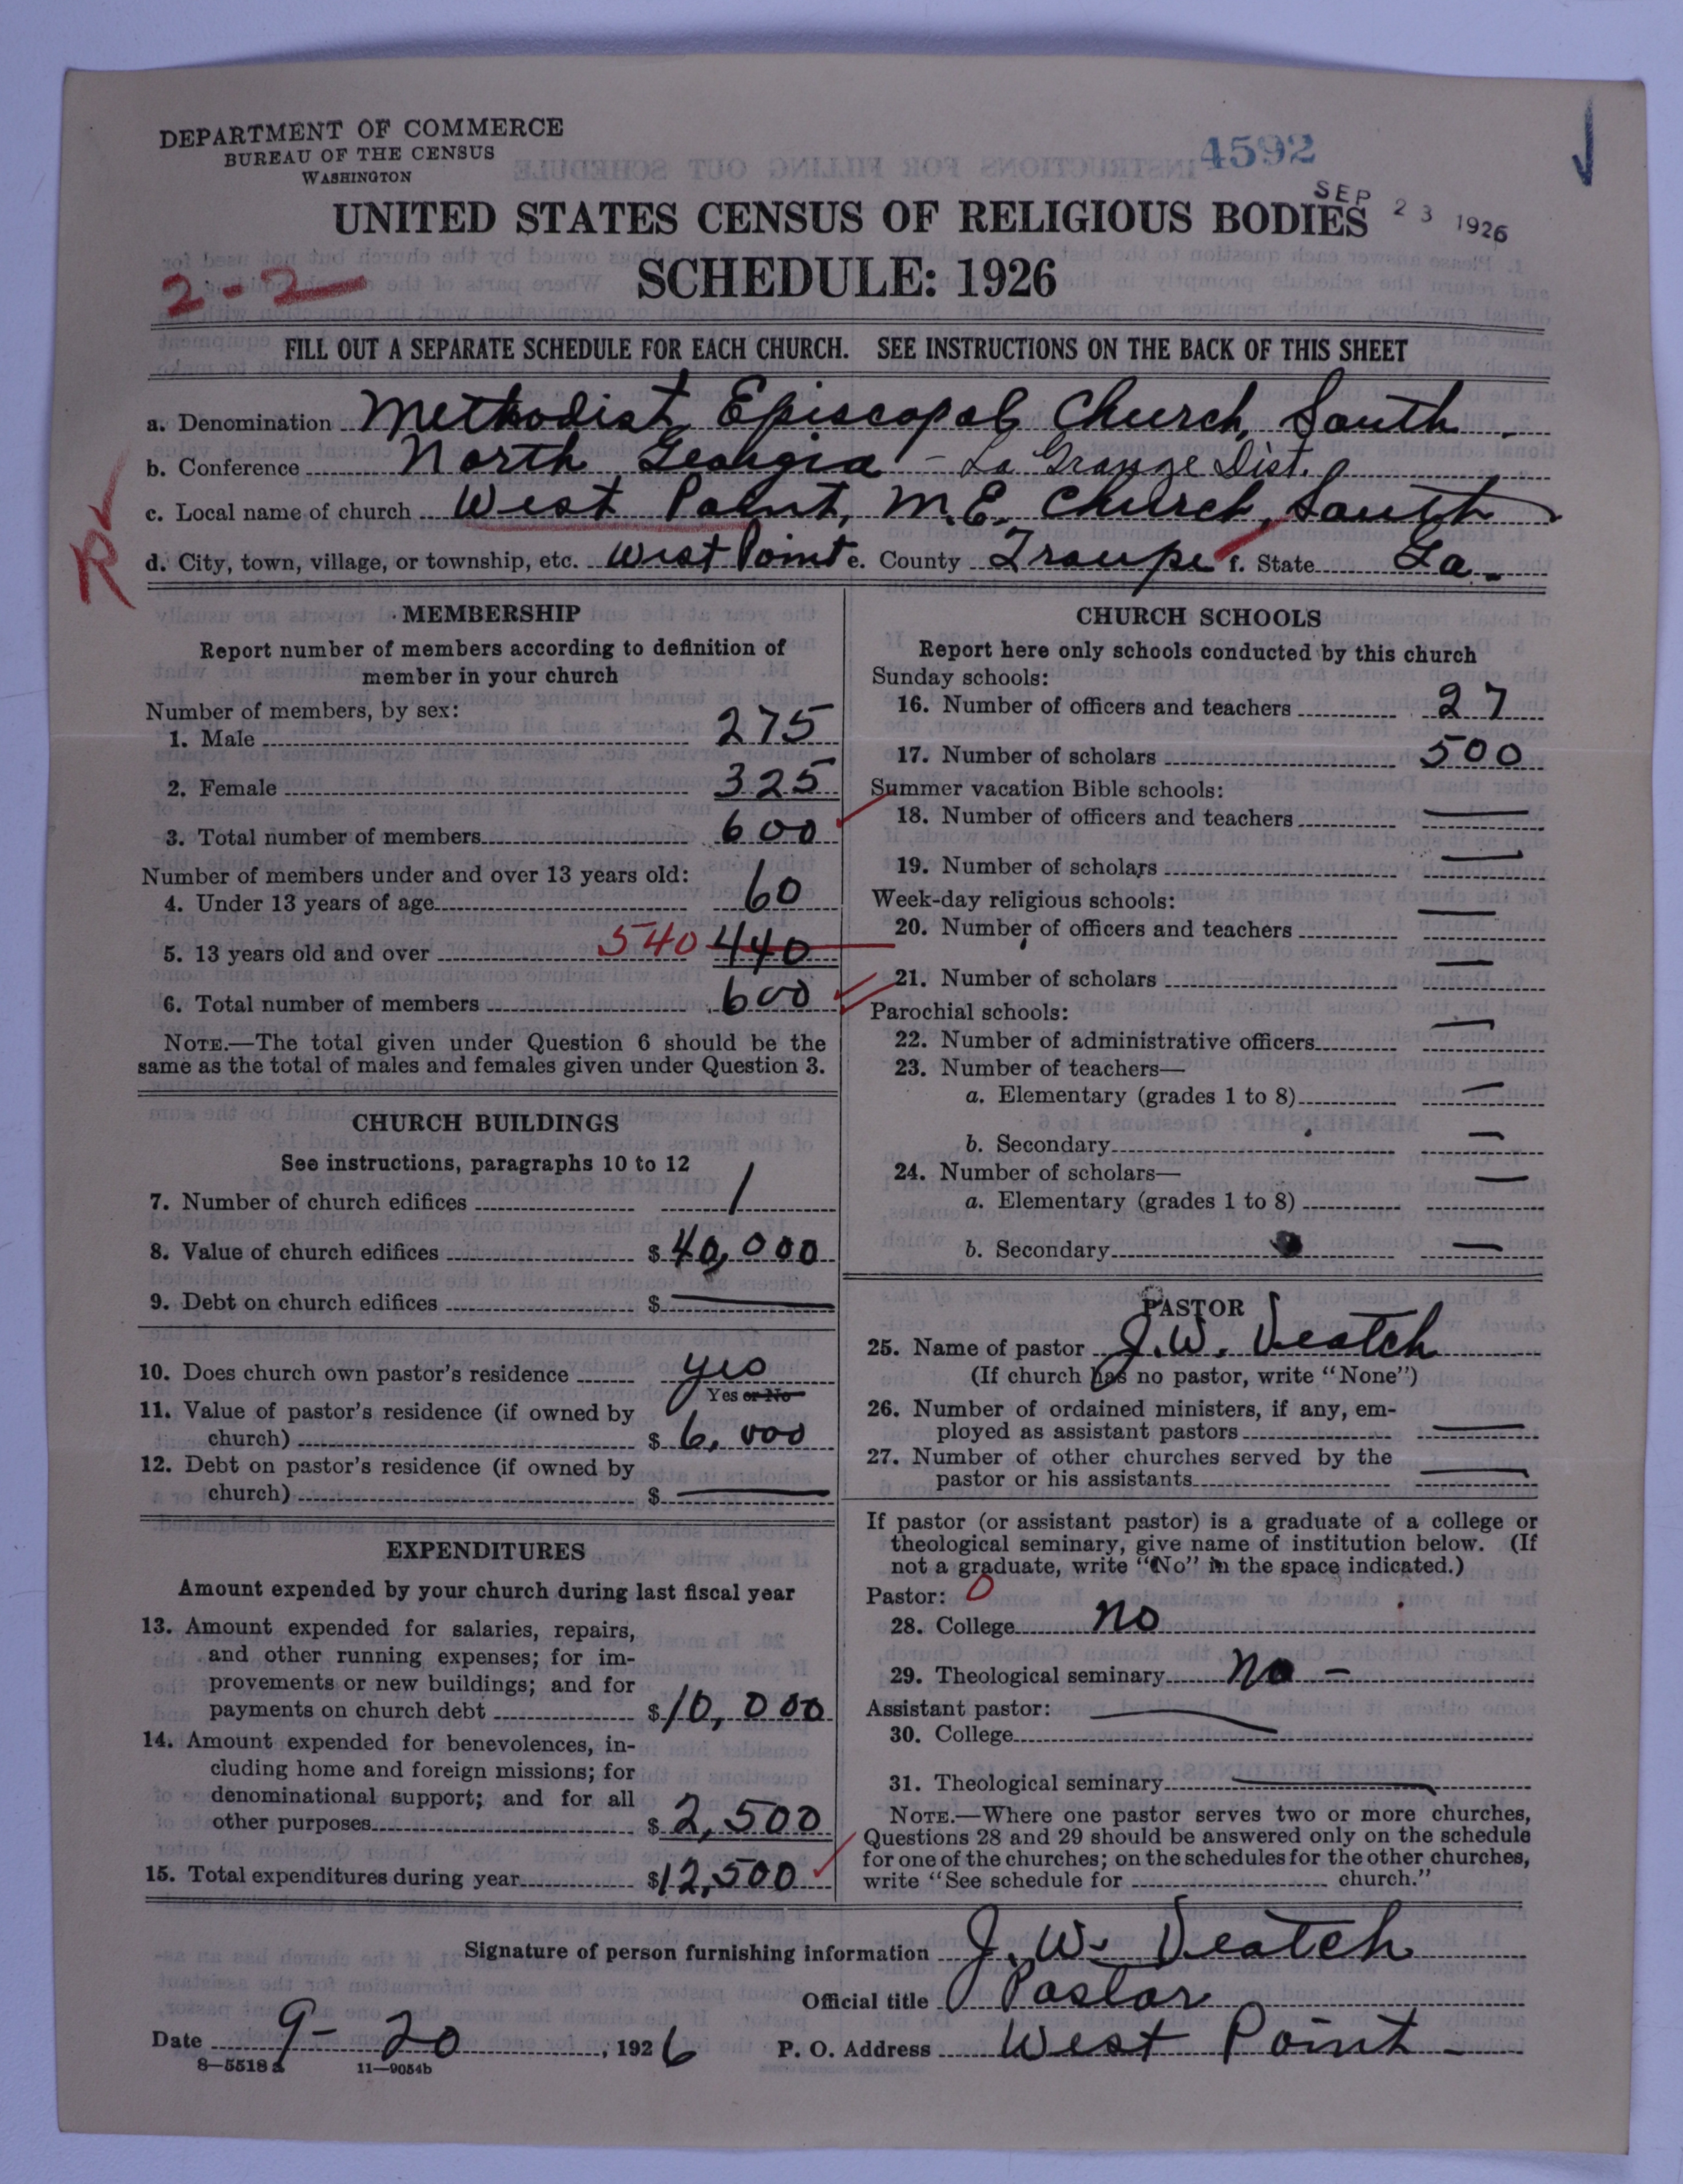 DEPARTMENT OF COMMERCE
BUREAU OF THE CENSUS
WASHINGTON
4592
SEP 23 1926
UNITED STATES CENSUS OF RELIGIOUS BODIES
2-2
SCHEDULE: 1926
FILL OUT A SEPARATE SCHEDULE FOR EACH CHURCH. SEE INSTRUCTIONS ON THE BACK OF THIS SHEET
a. Denomination Methodist Episcopal Church, South
b. Conference North Georgia - La Grange Dist.
c. Local name of church West Point, M.E. Church, South
R
d. City, town, village, or township, etc. West Point e. County Troupe f. State Ga.
MEMBERSHIP
Report number of members according to definition of
member in your church
Number of members, by sex:
1. Male 275
2. Female 325
3. Total number of members 600
Number of members under and over 13 years old:
4. Under 13 years of age 60
5. 13 years old and over 540 440
6. Total number of members 600
NOTE.—The total given under Question 6 should be the
same as the total of males and females given under Question 3.
CHURCH BUILDINGS
See instructions, paragraphs 10 to 12
7. Number of church edifices 1
8. Value of church edifices $ 40,000
9. Debt on church edifices $ —
10. Does church own pastor's residence yes
Yes or No
11. Value of pastor's residence (if owned by
church) $ 6,000
12. Debt on pastor's residence (if owned by
church) $ —
EXPENDITURES
Amount expended by your church during last fiscal year
13. Amount expended for salaries, repairs,
and other running expenses; for im-
provements or new buildings; and for
payments on church debt $ 10,000
14. Amount expended for benevolences, in-
cluding home and foreign missions; for
denominational support; and for all
other purposes $ 2,500
15. Total expenditures during year $ 12,500
CHURCH SCHOOLS
Report here only schools conducted by this church
Sunday schools:
16. Number of officers and teachers 27
17. Number of scholars 500
Summer vacation Bible schools:
18. Number of officers and teachers —
19. Number of scholars —
Week-day religious schools:
20. Number of officers and teachers —
21. Number of scholars —
Parochial schools:
22. Number of administrative officers —
23. Number of teachers—
a. Elementary (grades 1 to 8) —
b. Secondary —
24. Number of scholars—
a. Elementary (grades 1 to 8) —
b. Secondary —
PASTOR
25. Name of pastor J. W. Veatch
(If church has no pastor, write "None")
26. Number of ordained ministers, if any, em-
ployed as assistant pastors —
27. Number of other churches served by the
pastor or his assistants —
If pastor (or assistant pastor) is a graduate of a college or
theological seminary, give name of institution below. (If
not a graduate, write "No" in the space indicated.)
Pastor: 0
28. College no
29. Theological seminary no -
Assistant pastor: —
30. College
31. Theological seminary —
NOTE.—Where one pastor serves two or more churches,
Questions 28 and 29 should be answered only on the schedule
for one of the churches; on the schedules for the other churches,
write "See schedule for church."
Signature of person furnishing information J. W. Veatch
Official title Pastor
Date 9-20, 1926 P. O. Address West Point -
8—5518a 11—9054b